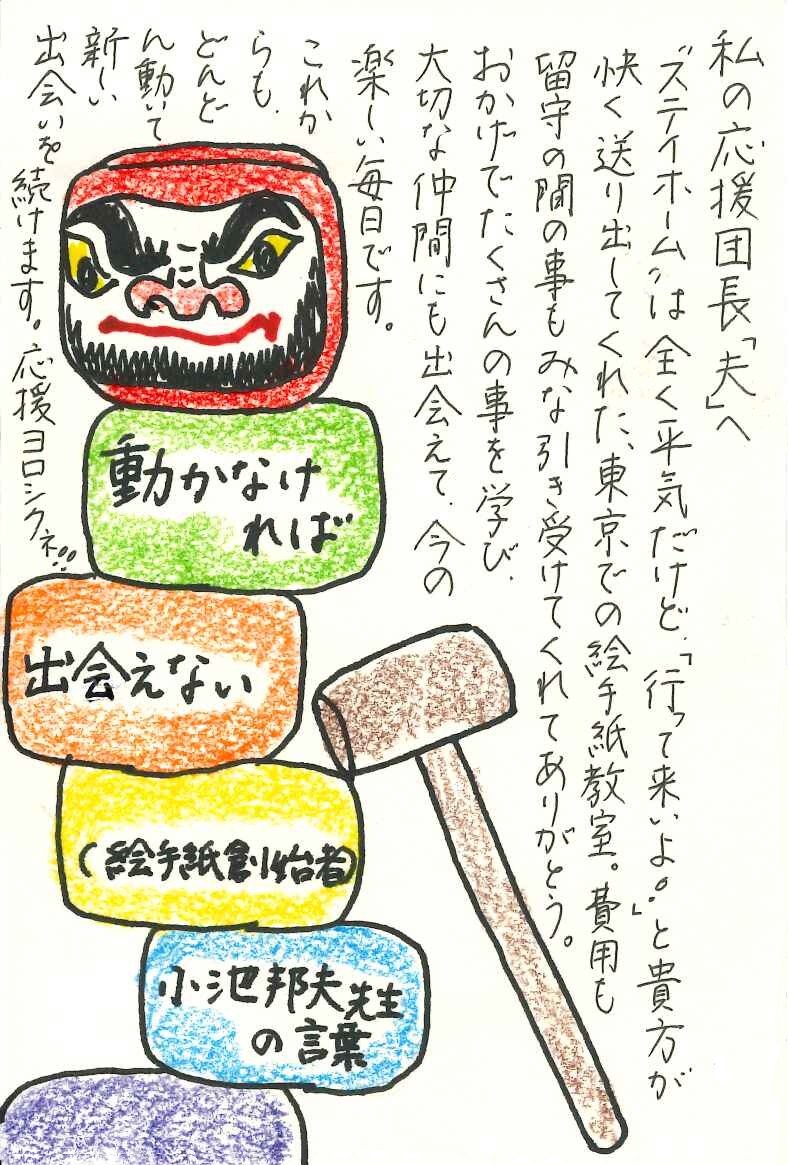 私の応援団長「夫」へ
"ステイホーム"は全く平気だけど、「行って来いよ。」と貴方が
快く送り出してくれた、東京での絵手紙教室。費用も
留守の間の事もみな引き受けてくれてありがとう。
おかげでたくさんの事を学び、
大切な仲間にも出会えて、今の
楽しい毎日です。
これか
らも、
どんど
ん動いて
新しい
出会いを続けます。応援ヨロシクネ!!
動かなけ
れば
出会えない
(絵手紙創始者)
小池邦夫先生
の言葉